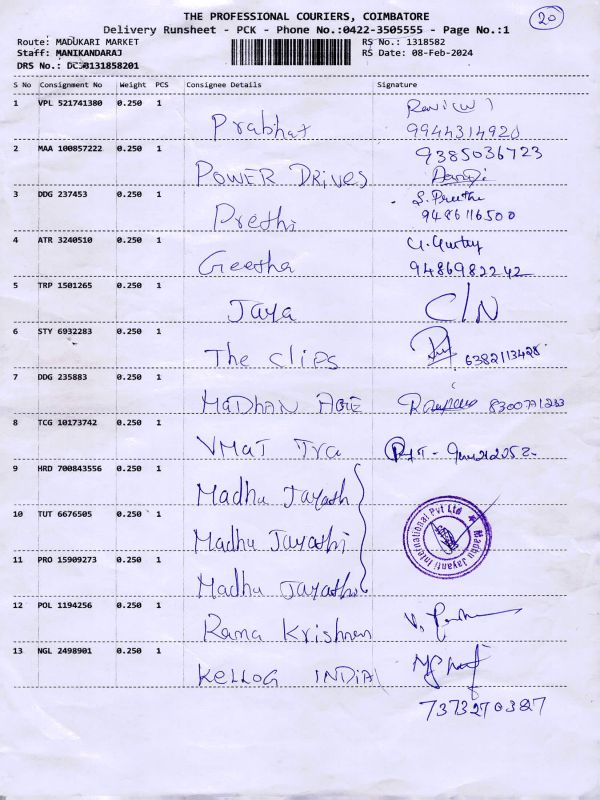 THE PROFESSIONAL COURIERS, COIMBATORE
20
Delivery Runsheet - PCK - Phone No.:0422-3505555 - Page No.:1
Route: MADUKARI MARKET RS No.: 1318582
Staff: MANIKANDARAJ RS Date: 08-Feb-2024
DRS No.:
S No Consignment No Weight PCS Consignee Details Signature
1 VPL 521741380 0.250 1 Prabhat
9944314920
2 MAA 100857222 0.250 1 POWER DRIVES 9385036723
3 DDG 237453 0.250 1 Prethi S. Preethi
9486116500
4 ATR 3240510 0.250 1 Geetha
9486982242
5 TRP 1501265 0.250 1 Jaya C/N
6 STY 6932283 0.250 1 The Clips 6382113428
7 DDG 235883 0.250 1 MADHAN
8 TCG 10173742 0.250 1 VMAT
9 HRD 700843556 0.250 1 Madhu Jayath
10 TUT 6676505 0.250 1 Madhu Jayathi
Madhu Jayanti International Pvt Ltd ★
11 PRO 15909273 0.250 1 Madhu Jayathi
12 POL 1194256 0.250 1 Rama Krishnan
13 NGL 2498901 0.250 1 KELLOG INDIA
7373270387